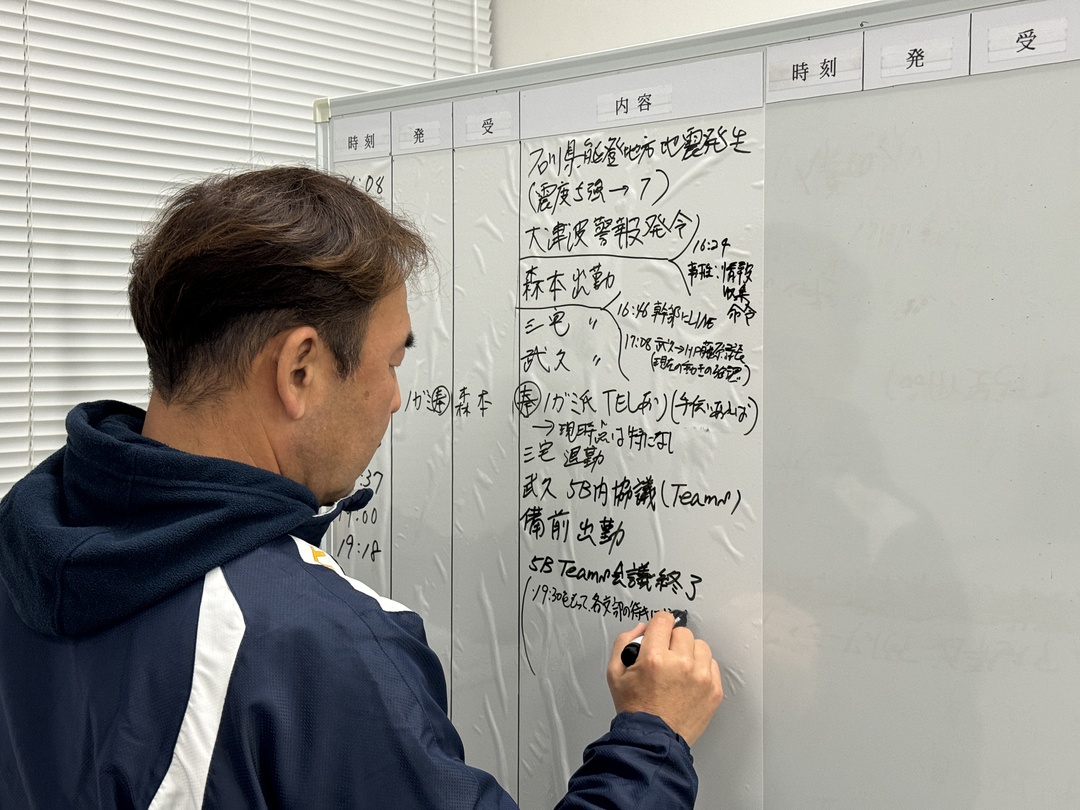 時刻 発 受 内容 時刻 発 受
:08 石川県能登地方地震発生
(震度5強→7)
大津波警報発令)
16:24
情報
収集
命令
森本出勤
16:46 幹部にLINE
三宅 〃
17:08 武久→
武久 〃
森本 TELあり(手伝いあれば)
→現時点は特になし
三宅 退勤
:37 武久 5B内協議(Teams)
19:00 備前出勤
19:18 5B Teams会議終了
(19:30をもって、各支部の待